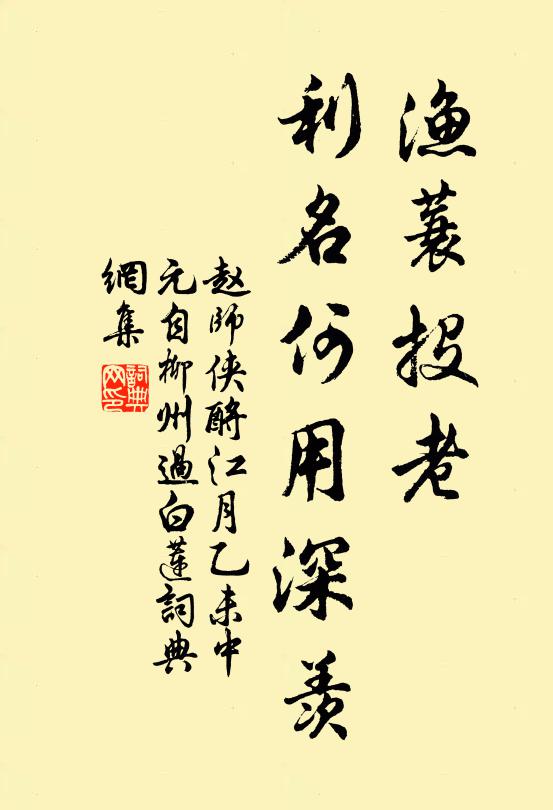 渔蓑投老
利名何用深羡
赵师侠酹江月乙未中
元自柳州过白莲词典
網集
詞典
网印